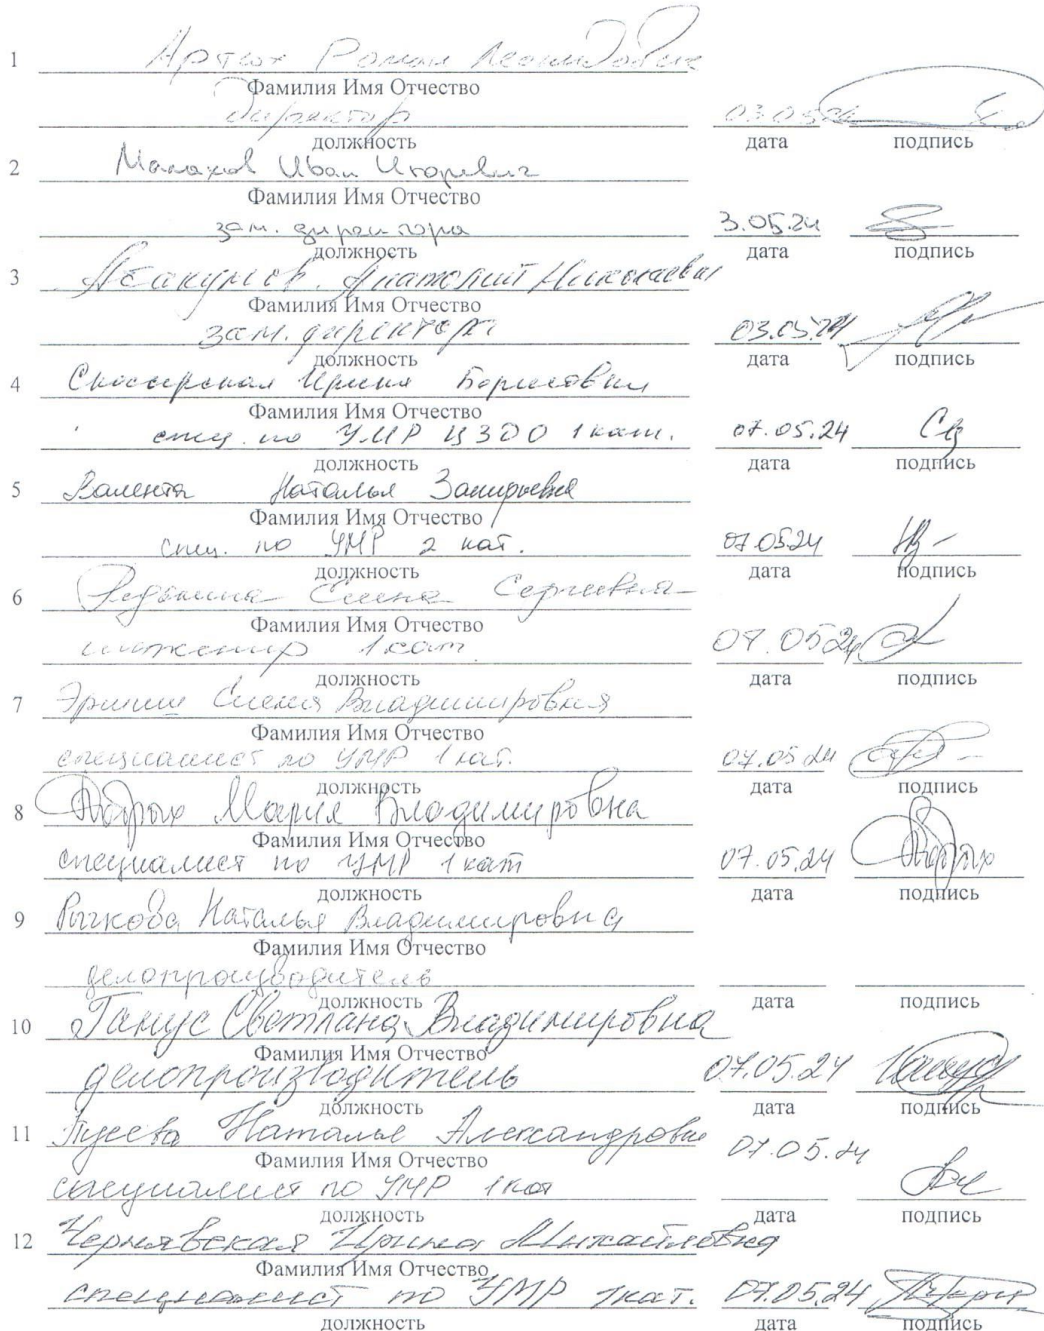 1 Артюх Роман Леонидович
Фамилия Имя Отчество
директор 03.05.24
должность дата подпись
2 Малахов Иван Игоревич
Фамилия Имя Отчество
зам. директора 3.05.24
должность дата подпись
3 Абакумов Анатолий Николаевич
Фамилия Имя Отчество
зам. директора 03.05.24
должность дата подпись
4 Ирина Борисовна
Фамилия Имя Отчество
спец. по УМР ЦЗДО 1 кат. 07.05.24
должность дата подпись
5 Валента Наталья
Фамилия Имя Отчество
спец. по УМР 2 кат. 07.05.24
должность дата подпись
6 Елена Сергеевна
Фамилия Имя Отчество
инженер 1 кат. 07.05.24
должность дата подпись
7 Елена Владимировна
Фамилия Имя Отчество
специалист по УМР 1 кат. 07.05.24
должность дата подпись
8 Мария Владимировна
Фамилия Имя Отчество
специалист по УМР 1 кат 07.05.24
должность дата подпись
9 Рычкова Наталья Владимировна
Фамилия Имя Отчество
делопроизводитель
должность дата подпись
10 Ганус Светлана Владимировна
Фамилия Имя Отчество
делопроизводитель 07.05.24
должность дата подпись
11 Наталья Александровна
Фамилия Имя Отчество 07.05.24
специалист по УМР 1 кат
должность дата подпись
12 Чернявская Ирина Михайловна
Фамилия Имя Отчество
специалист по УМР 1 кат. 07.05.24
должность дата подпись